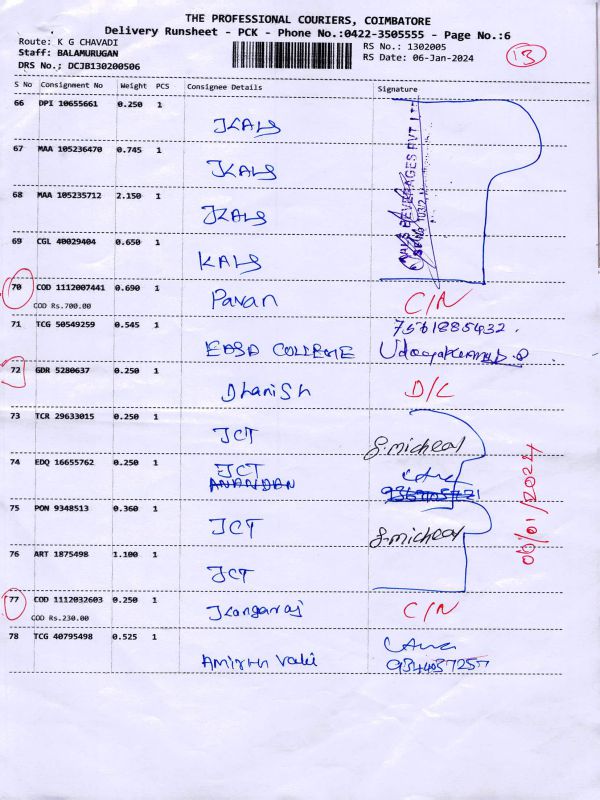 THE PROFESSIONAL COURIERS, COIMBATORE
Delivery Runsheet - PCK - Phone No.:0422-3505555 - Page No.:6
Route: K G CHAVADI
RS No.: 1302005
13
Staff: BALAMURUGAN
RS Date: 06-Jan-2024
DRS No.; DCJB130200506
S No Consignment No Weight PCS Consignee Details Signature
66 DPI 10655661 0.250 1
JKALS
67 MAA 105236470 0.745 1
JKALS
68 MAA 105235712 2.150 1
JKALS
BEVERAGES PVT LTD
69 CGL 40029404 0.650 1
KALS
70 COD 1112007441 0.690 1 Pavan C/N
COD Rs.700.00
71 TCG 50549259 0.545 1 7561885432.
EASA COLLEGE
72 GDR 5280637 0.250 1
Dhanish D/L
73 TCR 29633015 0.250 1
JCT S.micheal
74 EDQ 16655762 0.250 1 JCT
ANANDAN
75 PON 9348513 0.360 1
JCT S.micheal
06/01/2024
76 ART 1875498 1.100 1
JCT
77 COD 1112032603 0.250 1 JKangaraj C/N
COD Rs.230.00
78 TCG 40795498 0.525 1
Amirth Valli 9344037257